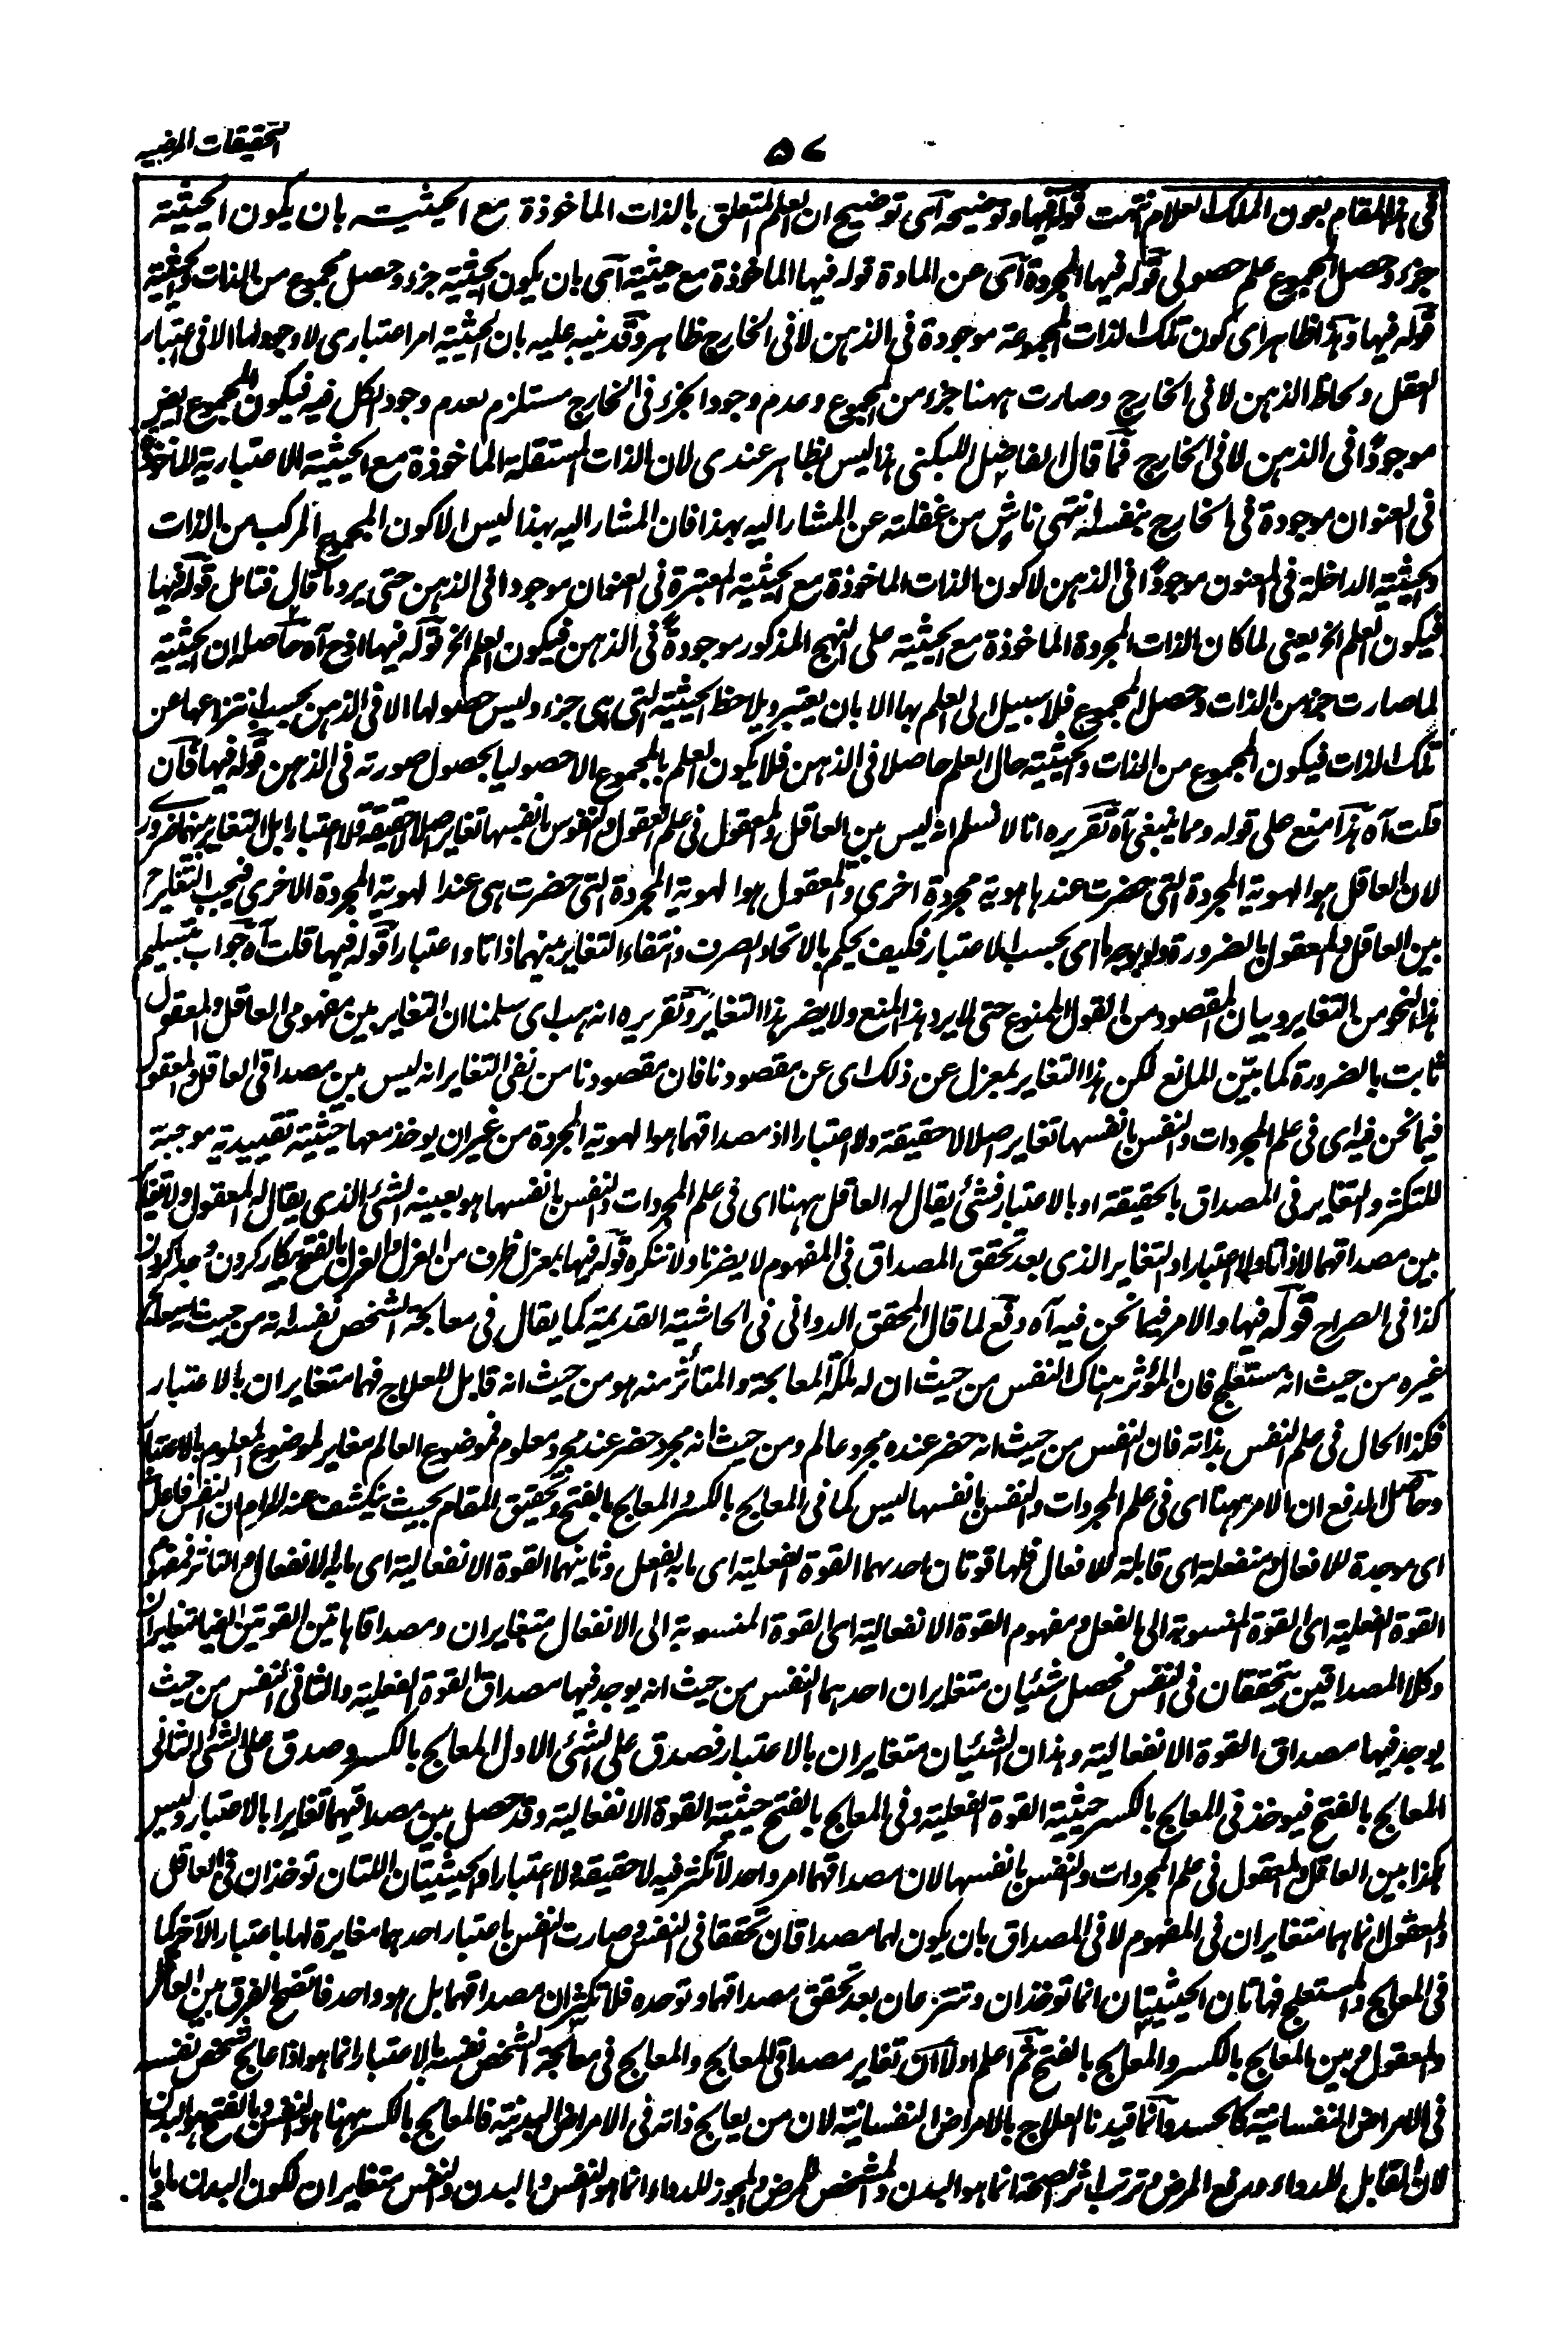 التحقيقات المرضيه
۵۷
فى هذا المقام بعون الملك العلام انتهت قوله فيها وتوضيحه آى توضيح ان العلم المتعلق بالذات الماخوذة مع الحيثيت بان يكون الحيثية
جزء وحصل المجموع علم حصولى قوله فيها المجردة آى عن المادة قوله فيها الماخوذة مع حيثية آى بان يكون الحيثية جزء وحصل مجموع من الذات والحيثية
قوله فيها وهذا ظاهر اى كون تلك الذات المجموعة موجودة فى الذهن لا فى الخارج ظاهر وقد نبيه عليه بان الحيثية امر اعتبارى لا وجود لها الا فى اعتبار
العقل ولحاظ الذهن لا فى الخارج وصارت ههنا جزء من المجموع وعدم وجود الجزء فى الخارج مستلزم لعدم وجود الكل فيه فيكون المجموع ايض
موجودًا فى الذهن لا فى الخارج فما قال الفاضل اللبكنى هذا ليس بظاهر عندى لان الذات المستقلة الماخوذة مع الحيثية الاعتبارية الماخوذة
فى العنوان موجودة فى الخارج بنفسها انتهى ناش من غفلته عن المشار اليه بهذا فان المشار اليه بهذا ليس الا كون المجموع المركب من الذات
والحيثية الداخلة فى المعنون موجودًا فى الذهن لا كون الذات الماخوذة مع الحيثية المعتبرة فى العنوان موجودا فى الذهن حتى يرد ما قال فتامل قوله فيها
فيكون العلم الخ يعنى لما كان الذات المجردة الماخوذة مع الحيثية على النهج المذكور موجودة فى الذهن فيكون العلم الخ قوله فيها اذ ح آه حاصله ان الحيثية
لما صارت جزء من الذات وحصل المجموع فلا سبيل الى العلم بها الا بان يعتبر ويلاحظ الحيثية التى هى جزء وليس حصولها الا فى الذهن بحسب انتزاعها عن
تلك الذات فيكون المجموع من الذات والحيثية حال العلم حاصلا فى الذهن فلا يكون العلم بالمجموع الا حصوليا بحصول صورته فى الذهن قوله فيها فان
قلت آه هذا منع على قوله ومما ينبغى آه تقريره انا لا نسلم انه ليس بين العاقل والمعقول فى علم العقول والنفوس بانفسها تغاير اصلا لا حقيقة ولا اعتبارا بل التغاير بينهما ضرورى
لان العاقل هو الهوية المجردة التى حضرت عندها هوية مجردة اخرى والمعقول هو الهوية المجردة التى حضرت هى عند الهوية المجردة الاخرى فيجب التغاير
بين العاقل والمعقول بالضرورة ولو بوجه ما اى بحسب الاعتبار فكيف يحكم بالاتحاد الصرف وانتفاء التغاير بينهما ذاتا واعتبارا قوله فيها قلت آه جواب بتسليم
هذا النحو من التغاير وبيان المقصود من القول الممنوع حتى لا يرد هذا المنع ولا يضر هذا التغاير وتقريره انه هب اى سلمنا ان التغاير بين مفهومى العاقل والمعقول
ثابت بالضرورة كما بيّن المانع لكن هذا التغاير بمعزل عن ذلك اى عن مقصودنا فان مقصودنا من نفى التغاير انه ليس بين مصداقى العاقل والمعقول
فيما نحن فيه اى فى علم المجردات والنفس بانفسها تغاير اصلا لا حقيقة ولا اعتبارا اذ مصداقهما هو الهوية المجردة من غير ان يوخذ معها حيثية تقييدية موجبة
للتكثر والتغاير فى المصداق بالحقيقة او بالاعتبار فشئ يقال له العاقل ههنا اى فى علم المجردات والنفس بانفسها هو بعينه الشئ الذى يقال له المعقول ولا تغاير
بين مصداقهما لا ذاتا ولا اعتبارا والتغاير الذى بعد تحقق المصداق فى المفهوم لا يضرنا ولا ننكره قوله فيها بمعزل ظرف من العزل والعزل بالفتح بيكار كردن وجدا كردن
كذا فى الصراح قوله فيها والامر فيما نحن فيه آه دفع لما قال المحقق الدوانى فى الحاشية القديمة كما يقال فى معالجة الشخص نفسه انه من حيث انه معالج
غيره من حيث انه مستعلج فان المؤثر هناك النفس من حيث ان له ملكة المعالجة والمتأثر منه هو من حيث انه قابل للعلاج فهما متغايران بالاعتبار
فكذا الحال فى علم النفس بذاته فان النفس من حيث انه حضر عنده مجرد عالم ومن حيث انه مجرد حضر عند مجرد معلوم فموضوع العالم مغاير لموضوع المعلوم بالاعتبار
وحاصل الدفع ان الامر ههنا اى فى علم المجردات والنفس بانفسها ليس كما فى المعالج بالكسر والمعالج بالفتح وتحقيق المقام بحيث ينكشف عنه المرام ان النفس فاعلة
اى موجدة للافعال ومنفعلة اى قابلة للانفعال فلها قوتان احدهما القوة الفعلية اى ما به الفعل وثانيهما القوة الانفعالية اى ما به الانفعال والتاثر فمفهوم
القوة الفعلية اى القوة المنسوبة الى الفعل ومفهوم القوة الانفعالية اى القوة المنسوبة الى الانفعال متغايران ومصداقا هاتين القوتين ايضا متغايران
وكلا المصداقين يتحققان فى النفس فحصل شئيان متغايران احدهما النفس من حيث انه يوجد فيها مصداق القوة الفعلية والثانى النفس من حيث
يوجد فيها مصداق القوة الانفعالية وهذان الشئيان متغايران بالاعتبار فصدق على الشئ الاول المعالج بالكسر وصدق على الشئ الثانى
المعالج بالفتح فيوخذ فى المعالج بالكسر حيثية القوة الفعلية وفى المعالج بالفتح حيثية القوة الانفعالية وقد حصل بين مصداقيهما تغايرا بالاعتبار وليس
هكذا بين العاقل والمعقول فى علم المجردات والنفس بانفسها لان مصداقهما امر واحد لا تكثر فيه لا حقيقة ولا اعتبارا والحيثيتان اللتان توخذان فى العاقل
والمعقول انما هما متغايران فى المفهوم لا فى المصداق بان يكون لهما مصداقان تحققا فى النفس وصارت النفس باعتبار احدهما مغايرة لها باعتبار الآخر كما
فى المعالج والمستعلج فهاتان الحيثيتان انما توخذان وتنتزعان بعد تحقق مصداقهما وتوحده فلا تكثران مصداقهما بل هو واحد فاتضح الفرق بين العاقل
والمعقول وبين المعالج بالكسر والمعالج بالفتح ثم اعلم اولا ان تغاير مصداقى المعالج والمعالج فى معالجة الشخص نفسه بالاعتبار انما هو اذا عالج شخص نفسه
فى الامراض النفسانية كالحسد وانما قيدنا العلاج بالامراض النفسانية لان من يعالج ذاته فى الامراض البدنية فالمعالج بالكسر ههنا هو النفس وبالفتح هو البدن
لان القابل للدواء ورفع المرض وترتب اثر الصحة انما هو البدن والمشخص للمرض والمجوز للدواء انما هو النفس والبدن والنفس متغايران لكون البدن ماديا